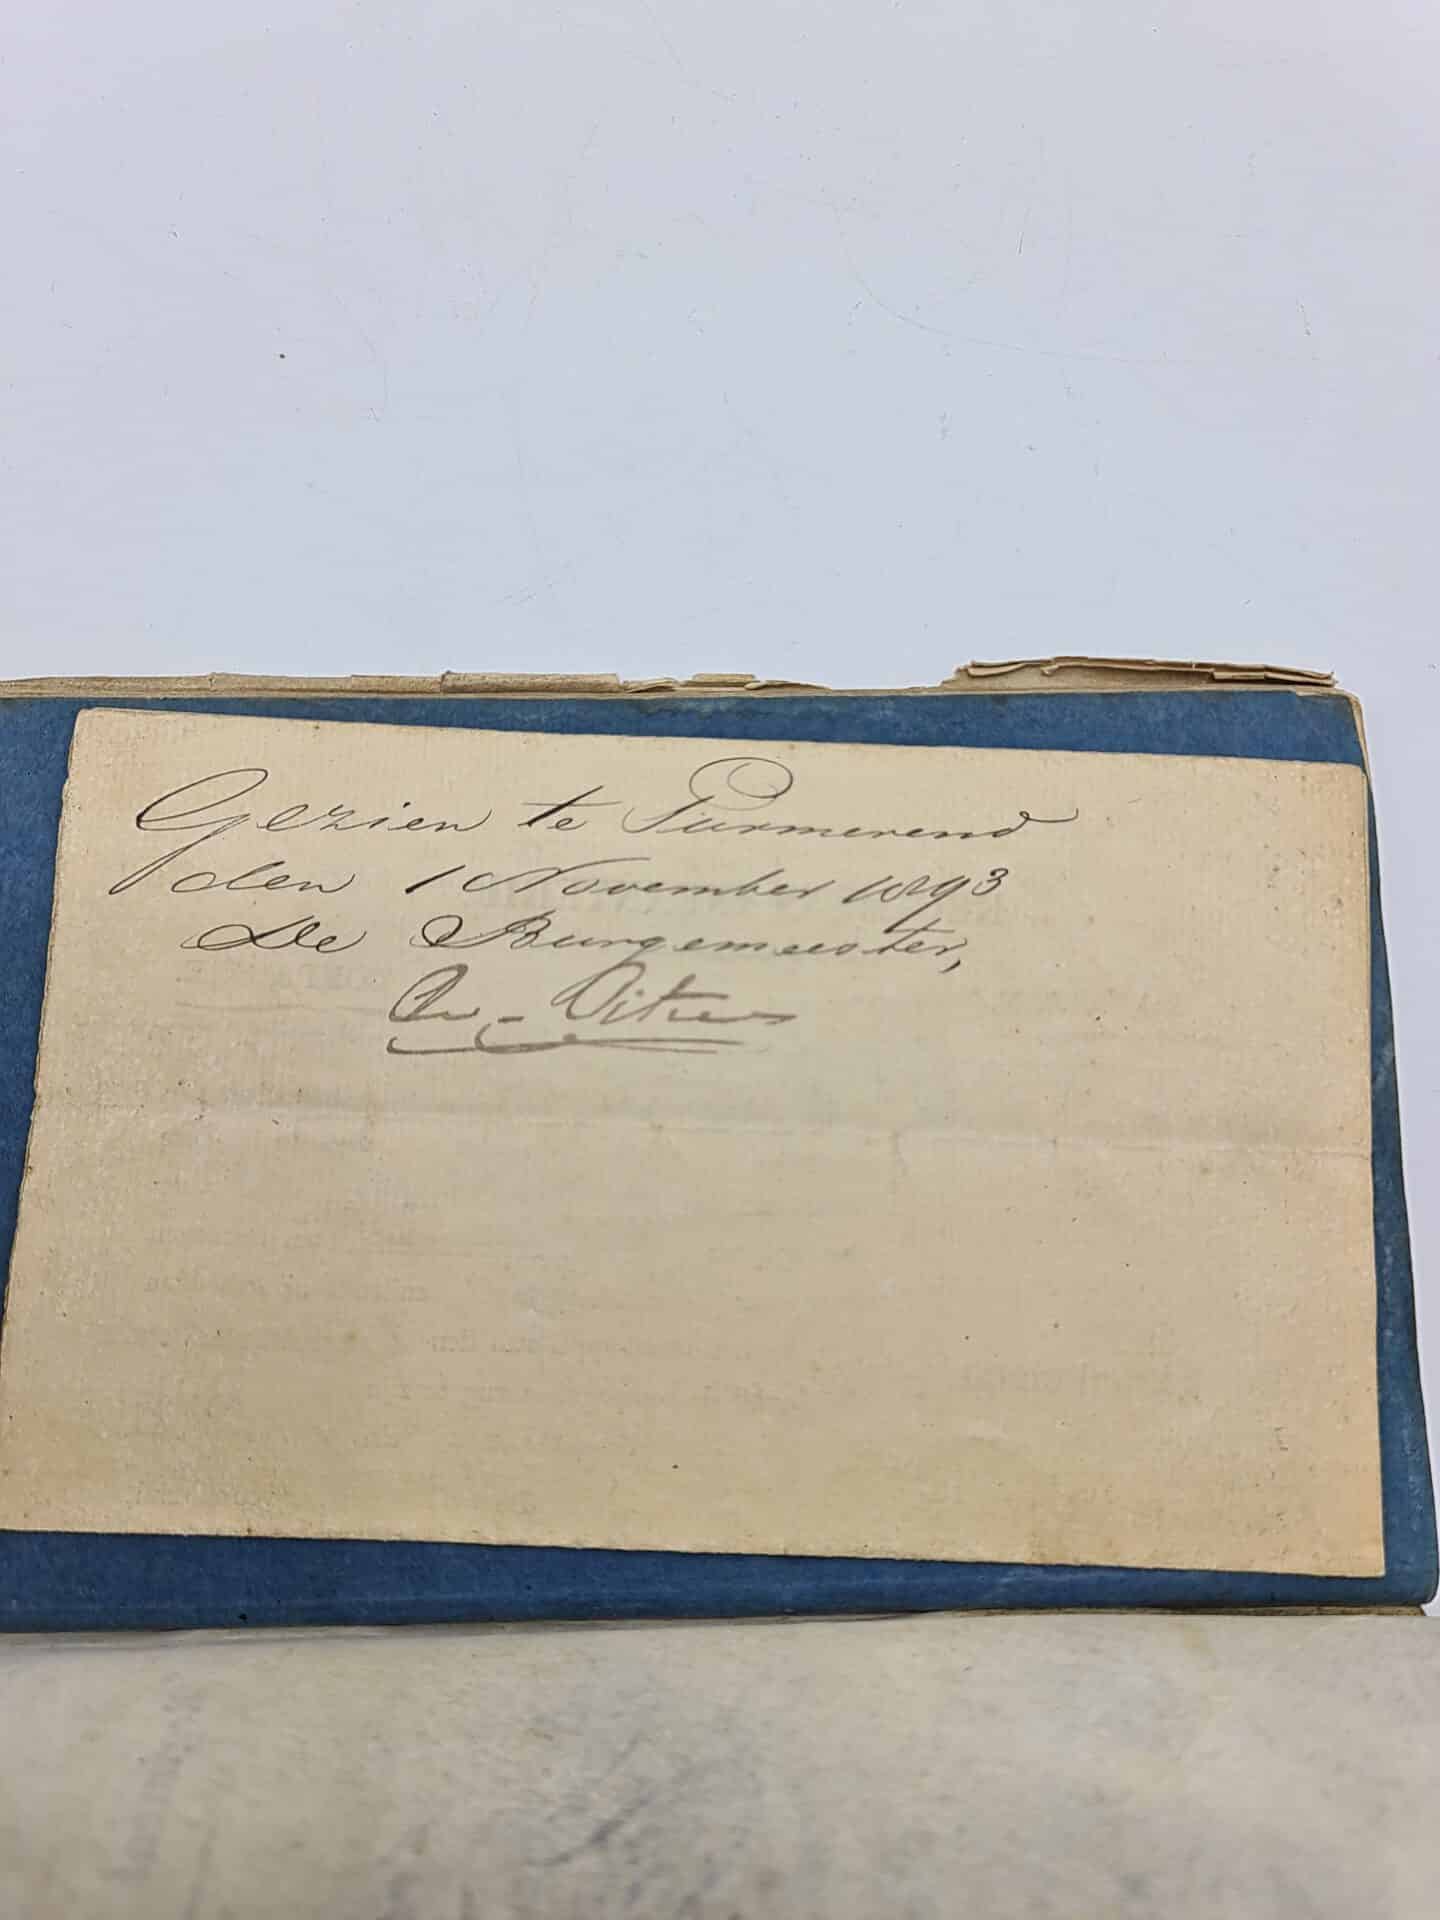 Gezien te Purmerend
den 1 November 1893
De Burgemeester,